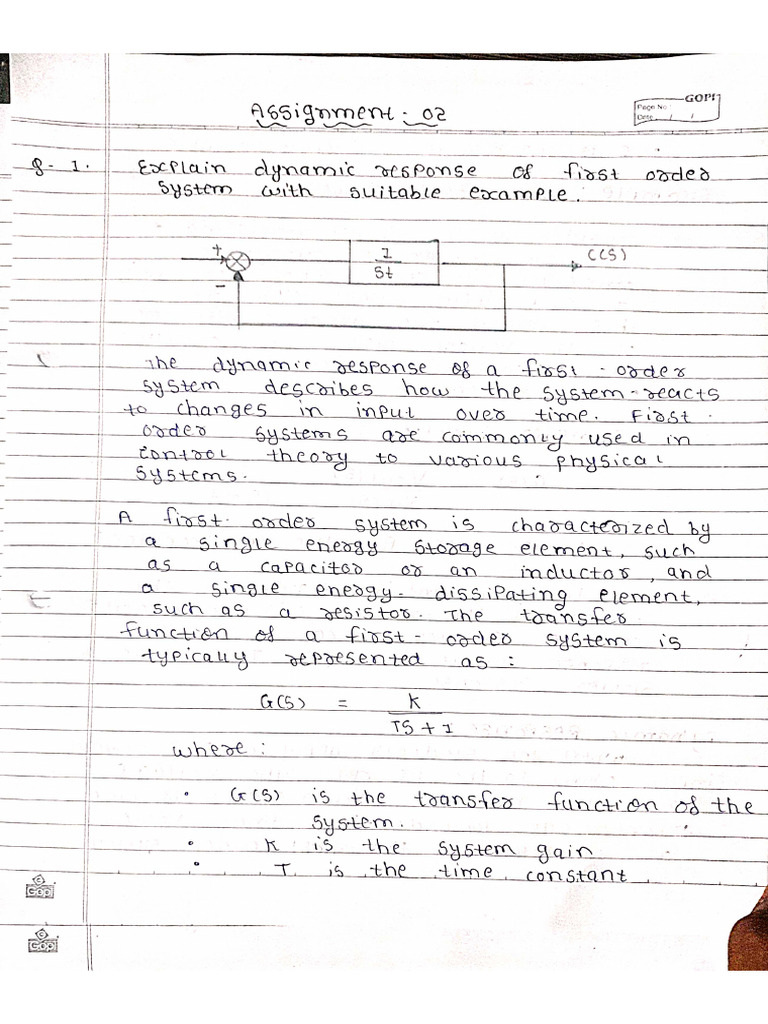 GOPI
Page No
Date / /
Assignment: 02
Q-1. Explain dynamic response of first order
system with suitable example.
+
1
St
C(S)
-
The dynamic response of a first-order
system describes how the system-reacts
to changes in input over time. First
order systems are commonly used in
control theory to various physical
systems.
A first-order system is characterized by
a single energy storage element, such
as a capacitor or an inductor, and
a single energy-dissipating element,
such as a resistor. The transfer
function of a first-order system is
typically represented as:
G(S) = K
TS + 1
where:
• G(S) is the transfer function of the
system.
• K is the system gain
• T is the time constant
Gopi
Gopi